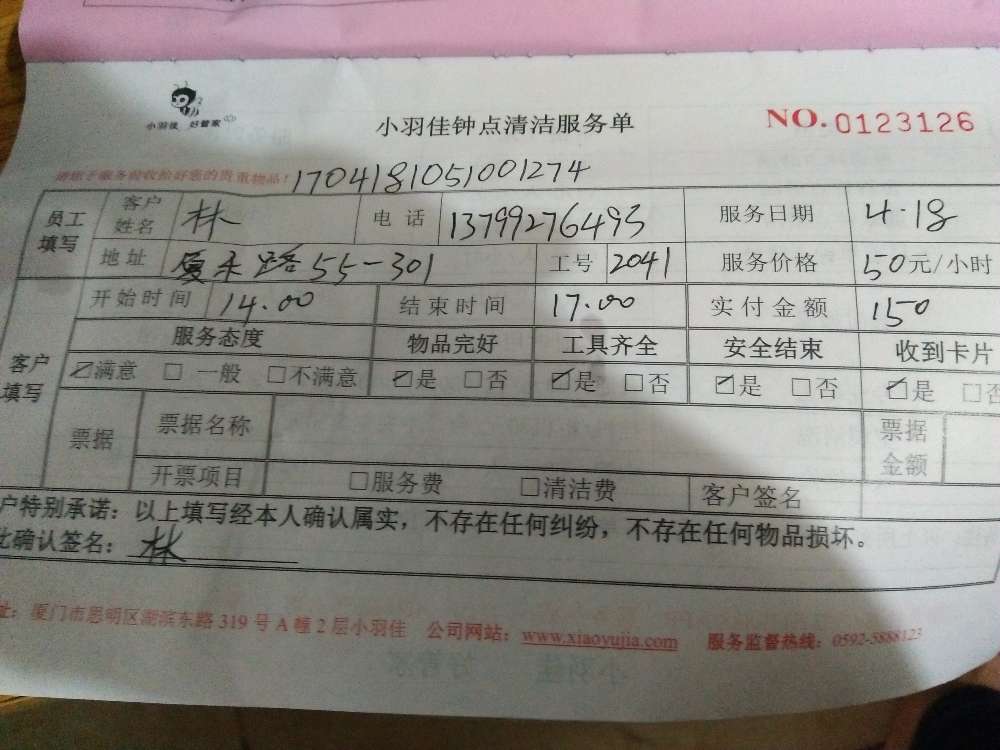 小羽佳 好管家
小羽佳钟点清洁服务单
NO.0123126
请您于服务前收拾好您的贵重物品!
1704181051001274
员工填写 客户姓名 林 电话 13799276493 服务日期 4.18
地址 厦禾路55-301 工号 2041 服务价格 50元/小时
客户填写 开始时间 14.00 结束时间 17.00 实付金额 150
服务态度 物品完好 工具齐全 安全结束 收到卡片
☑满意 □一般 □不满意 ☑是 □否 ☑是 □否 ☑是 □否 ☑是 □否
票据 票据名称 票据金额
开票项目 □服务费 □清洁费 客户签名
户特别承诺:以上填写经本人确认属实,不存在任何纠纷,不存在任何物品损坏。
此确认签名:林
址:厦门市思明区湖滨东路319号A幢2层小羽佳 公司网站:www.xiaoyujia.com 服务监督热线:0592-5888123